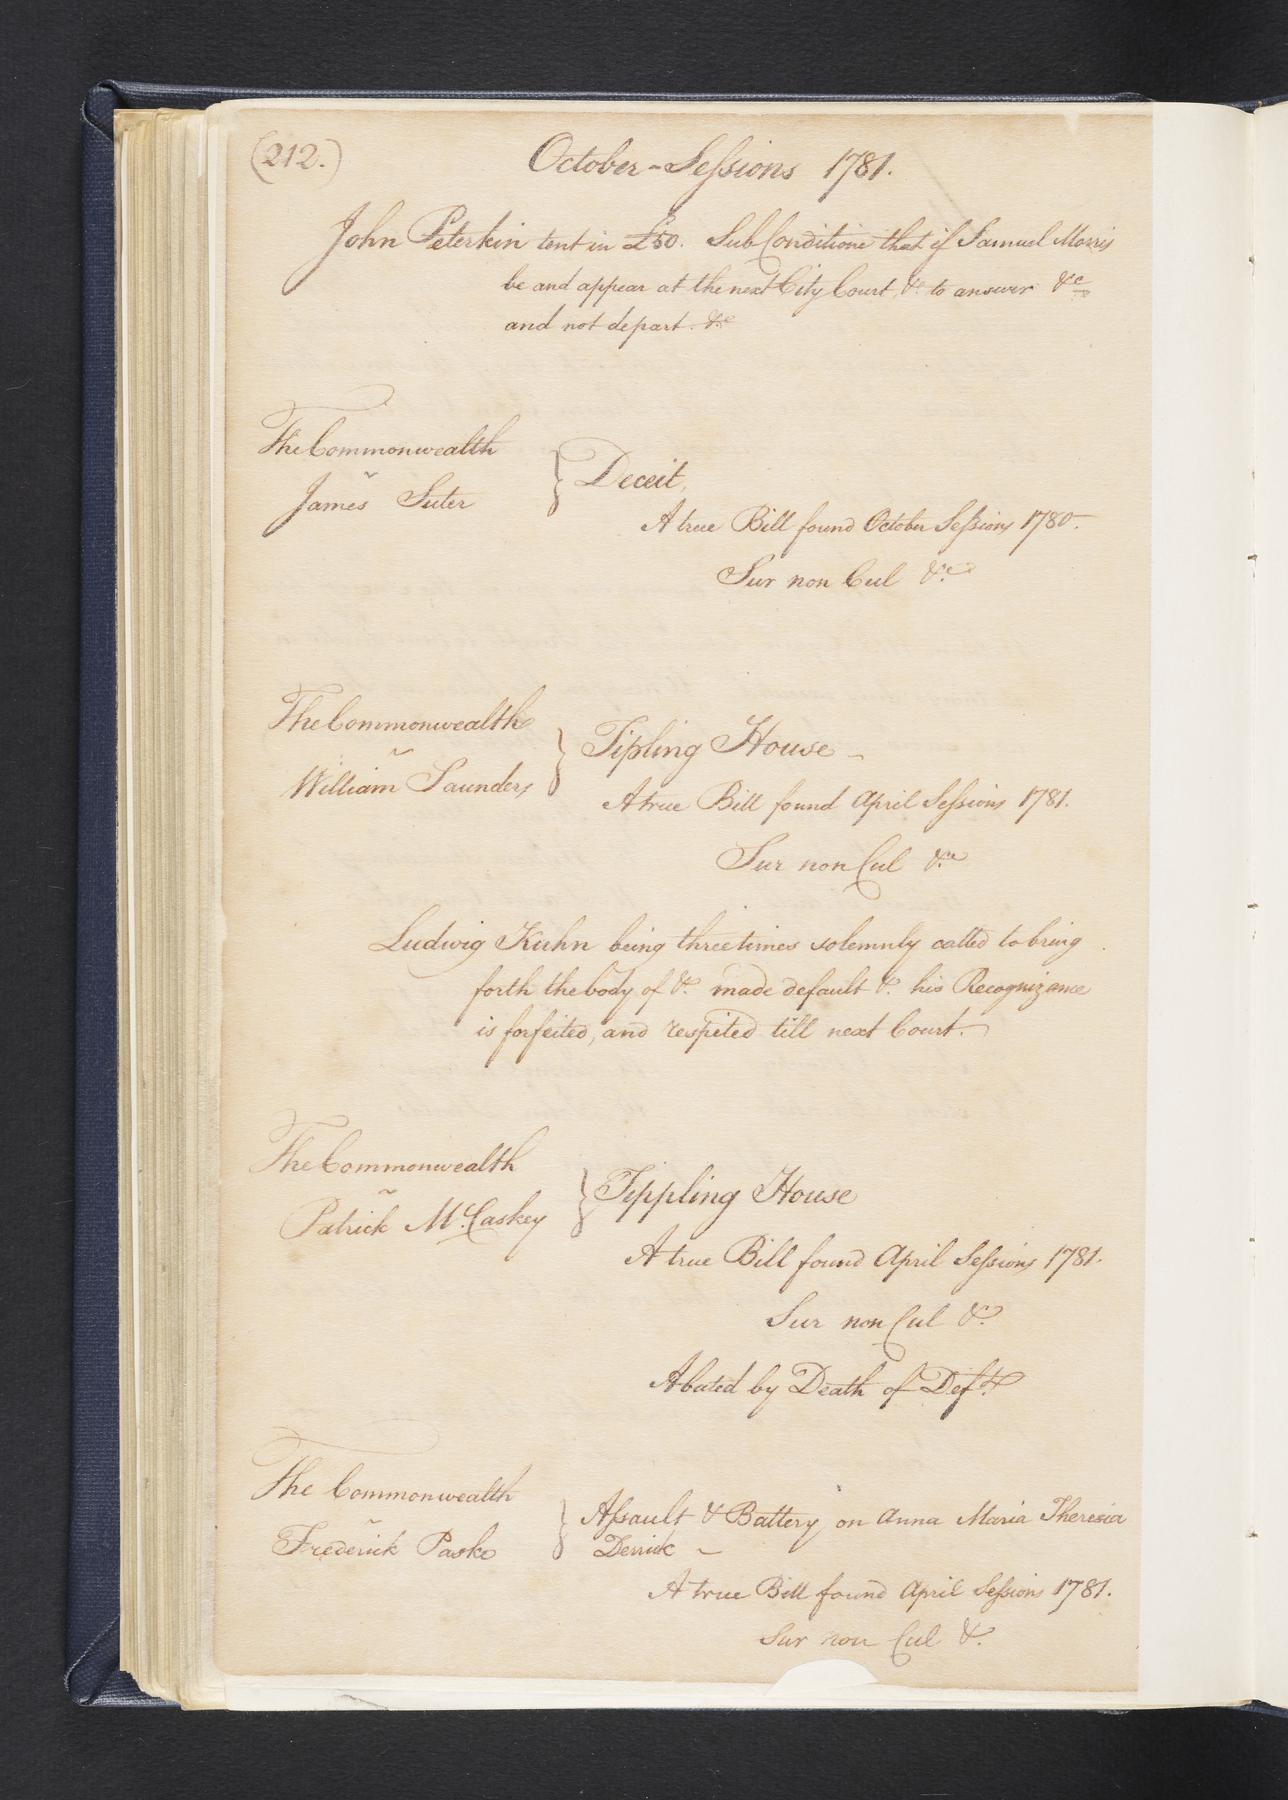 (212.)
October-Sessions 1781.
John Peterkin tent in £50. Sub Conditione that if Samuel Morris
be and appear at the next City Court, &c to answer &c
and not depart. &c
The Commonwealth
James Suter
} Deceit,
A true Bill found October Sessions 1780.
Sur non Cul &c
The Commonwealth
William Saunders
} Tipling House -
A true Bill found April Sessions 1781.
Sur non Cul &c
Ludwig Kuhn being three times solemnly called to bring
forth the body of &c. made default &c. his Recognizance
is forfeited, and respited till next Court.
The Commonwealth
Patrick McCaskey
} Tippling House
A true Bill found April Sessions 1781.
Sur non Cul &c.
Abated by Death of Deft.
The Commonwealth
Frederick Pasko
} Assault & Battery on Anna Maria Theresia
Derrick -
A true Bill found April Sessions 1781.
Sur non Cul &c.